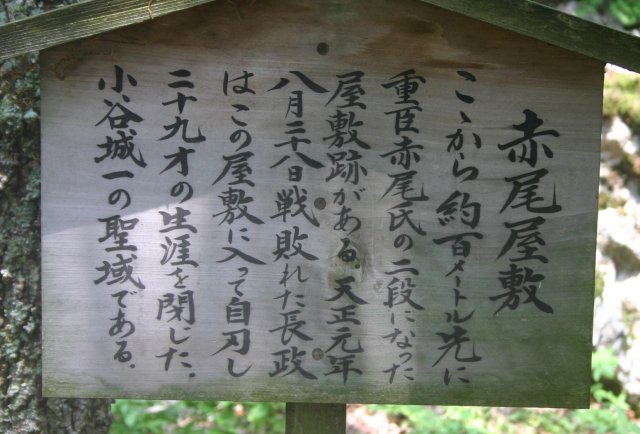 赤尾屋敷
こゝから約百メートル先に
重臣赤尾氏の二段になった
屋敷跡がある。天正元年
八月二十八日戦敗れた長政
はこの屋敷に入って自刃し
二十九才の生涯を閉じた。
小谷城一の聖域である。